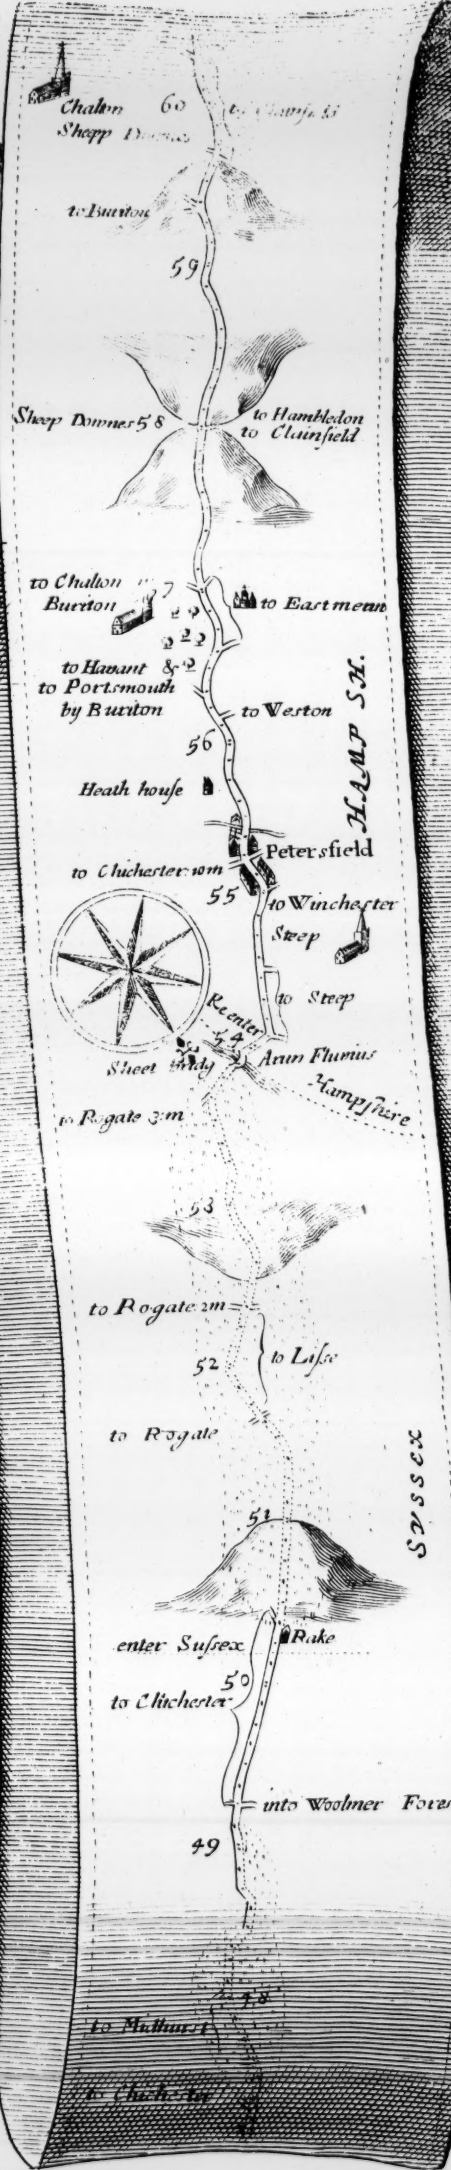 Chalton 60
Sheep Downes
to Clainfield
to Buriton
59
Sheep Downes 58
to Hambledon
to Clainfield
to Chalton
Buriton
7
to Eastmean
to Havant &
to Portsmouth
by Buriton
to Weston
56
HAMP SH.
Heath house
Petersfield
to Chichester 10m
55
to Winchester
Steep
to Steep
Reenter
54
Sheet bridg
Arun Fluvius
Hampshire
to Rogate 3m
53
to Rogate 2m
52
to Lisse
to Rogate
SVSSEX
51
enter Sussex
Rake
50
to Chichester
into Woolmer Fores
49
48
to Midhurst
to Chichester